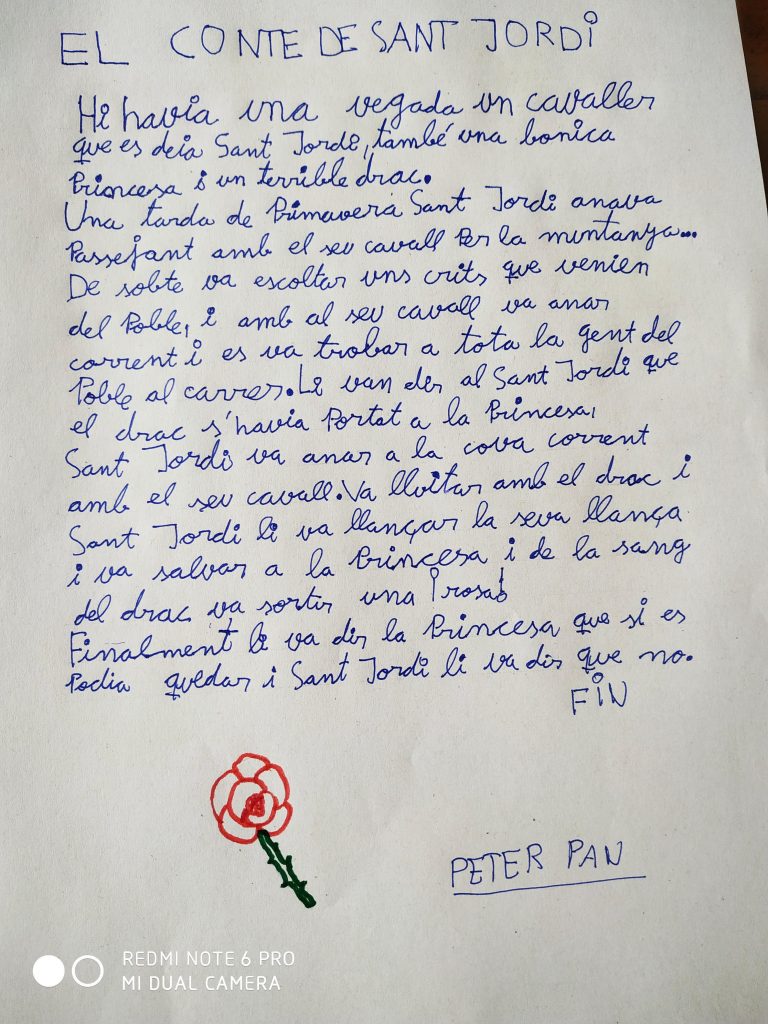 EL CONTE DE SANT JORDI
Hi havia una vegada un cavaller
que es deia Sant Jordi, també una bonica
Princesa i un terrible drac.
Una tarda de Primavera Sant Jordi anava
Passejant amb el seu cavall Per la muntanya...
De sobte va escoltar uns crits que venien
del Poble, i amb al seu cavall va anar
corrent i es va trobar a tota la gent del
Poble al carrer. Li van dir al Sant Jordi que
el drac s'havia Portat a la Princesa,
Sant Jordi va anar a la cova corrent
amb el seu cavall. Va lluitar amb el drac i
Sant Jordi li va llançar la seva llança
i va salvar a la Princesa i de la sang
del drac va sortir una ¡rosa!
Finalment li va dir la Princesa que si es
Podia quedar i Sant Jordi li va dir que no.
FIN
PETER PAN
REDMI NOTE 6 PRO
MI DUAL CAMERA